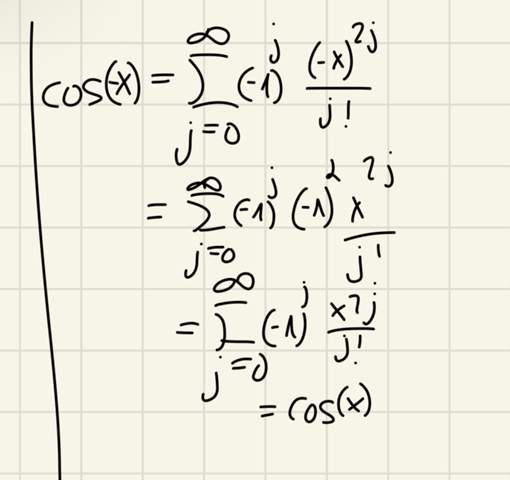 cos(-x) = ∑_{j=0}^{∞} (-1)^j (-x)^{2j} / j!
= ∑_{j=0}^{∞} (-1)^j (-1)^2 x^{2j} / j!
= ∑_{j=0}^{∞} (-1)^j x^{2j} / j!
= cos(x)